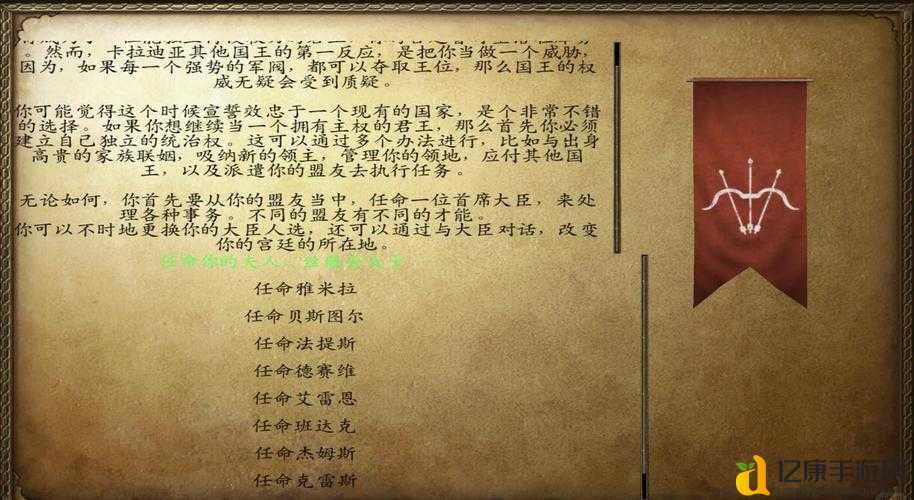 。然而，卡拉迪亚其他国王的第一反应，是把你当做一个威胁，
因为，如果每一个强势的军阀，都可以夺取王位，那么国王的权
威无疑会受到质疑。
你可能觉得这个时候宣誓效忠于一个现有的国家，是个非常不错
的选择。如果你想继续当一个拥有主权的君王，那么首先你必须
建立自己独立的统治权。这可以通过多个办法进行，比如与出身
高贵的家族联姻，吸纳新的领主，管理你的领地，应付其他国
王，以及派遣你的盟友去执行任务。
无论如何，你首先要从你的盟友当中，任命一位首席大臣，来处
理各种事务。不同的盟友有不同的才能。
你可以不时地更换你的大臣人选，还可以通过与大臣对话，改变
你的宫廷的所在地。
任命你的夫人，
任命雅米拉
任命贝斯图尔
任命法提斯
任命德赛维
任命艾雷恩
任命班达克
任命杰姆斯
任命克雷斯
亿康手游网